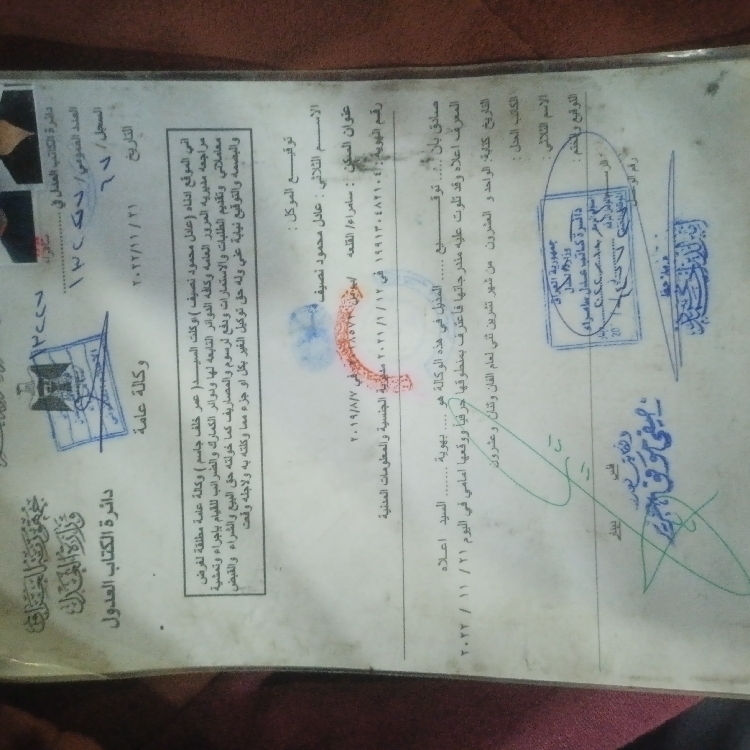 جمهورية العراق
وزارة العدل
دائرة الكتاب العدول
دائرة الكاتب العدل في
العدد العمومي /
السجل / ٦٧
التاريخ ٢٠٢٢/١١/٢١
وكالة عامة
اني الموقع ادناه (عادل محمود نصيف) وكلت السيد (عمر خلف جاسم) وكالة عامة مطلقة لغرض
مراجعه مديريه المرور العامه وكافه الدوائر التابعه لها ودوائر الكمارك والضرائب للقيام بإجراء وتمشية
معاملاتي وتقديم الطلبات والاستمارات ودفع لرسوم والمصاريف كما خولته حق البيع والشراء والقبض
والبصمه والتوقيع نيابة عني وله حق توكيل الغير بكل او جزء مما وكلته به ولاجله وقعت
توقيع الموكل :
الاسم الثلاثي : عادل محمود نصيف
عنوان السكن : سامراء/ القلعه في ٢٠١٩/٨/٧
رقم الهوية: ١٩٩١٣٠٤٨٢١٠٤ في ٢٠٢١/١/١٢ مديرية الجنسية والمعلومات المدنية
صادق بان ..... توقيع ..... المذيل في هذه الوكالة هو .... بهوية ........ السيد اعلاه
المعرف اعلاه وقد تلوت عليه مندرجاتها فاعترف بمنطوقها حرفيا ووقعها امامي في اليوم ٢١/ ١١ / ٢٠٢٢
التاريخ كتابة: الواحد و العشرون من شهر تشرين ثني لعام الفان وثنان وعشرون
الكاتب العدل :
الاسم الثلاثي :
التوقيع والختم :
رقم الوصل
فلس
دينار
جمهورية العراق
وزارة العدل
دائرة كاتب عدل سامراء